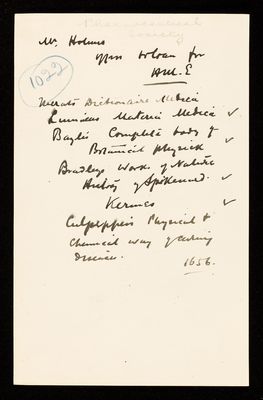 Pharmaceutical
Society
Mr. Holmes
offers to loan for
H.M.E
1022
Merats Dictionaire Medica
Linnaeus Materia Medica ✓
Baylis Complete body of
Botanical physick ✓
Bradleys Works of Nature
History of Spikenard. ✓
Kermes ✓
Culpeppers Physical &
Chemical way of curing
Disease.
1656.